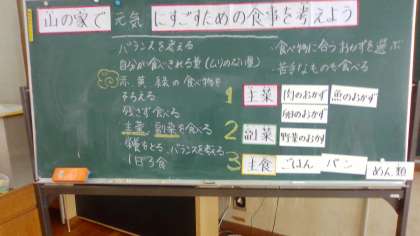 山の家で 元気 にすごすための食事を考えよう
バランスを考える
自分が食べきれる量(ムリのない量)
赤、黄、緑の食べ物を
そろえる
残さず食べる
主菜、副菜を食べる
バランスを考える
1日3食
・食べ物に合うおかずを選ぶ
苦手なものも食べる
1 主菜 肉のおかず 魚のおかず
卵のおかず
2 副菜 野菜のおかず
3 主食 ごはん パン めん類